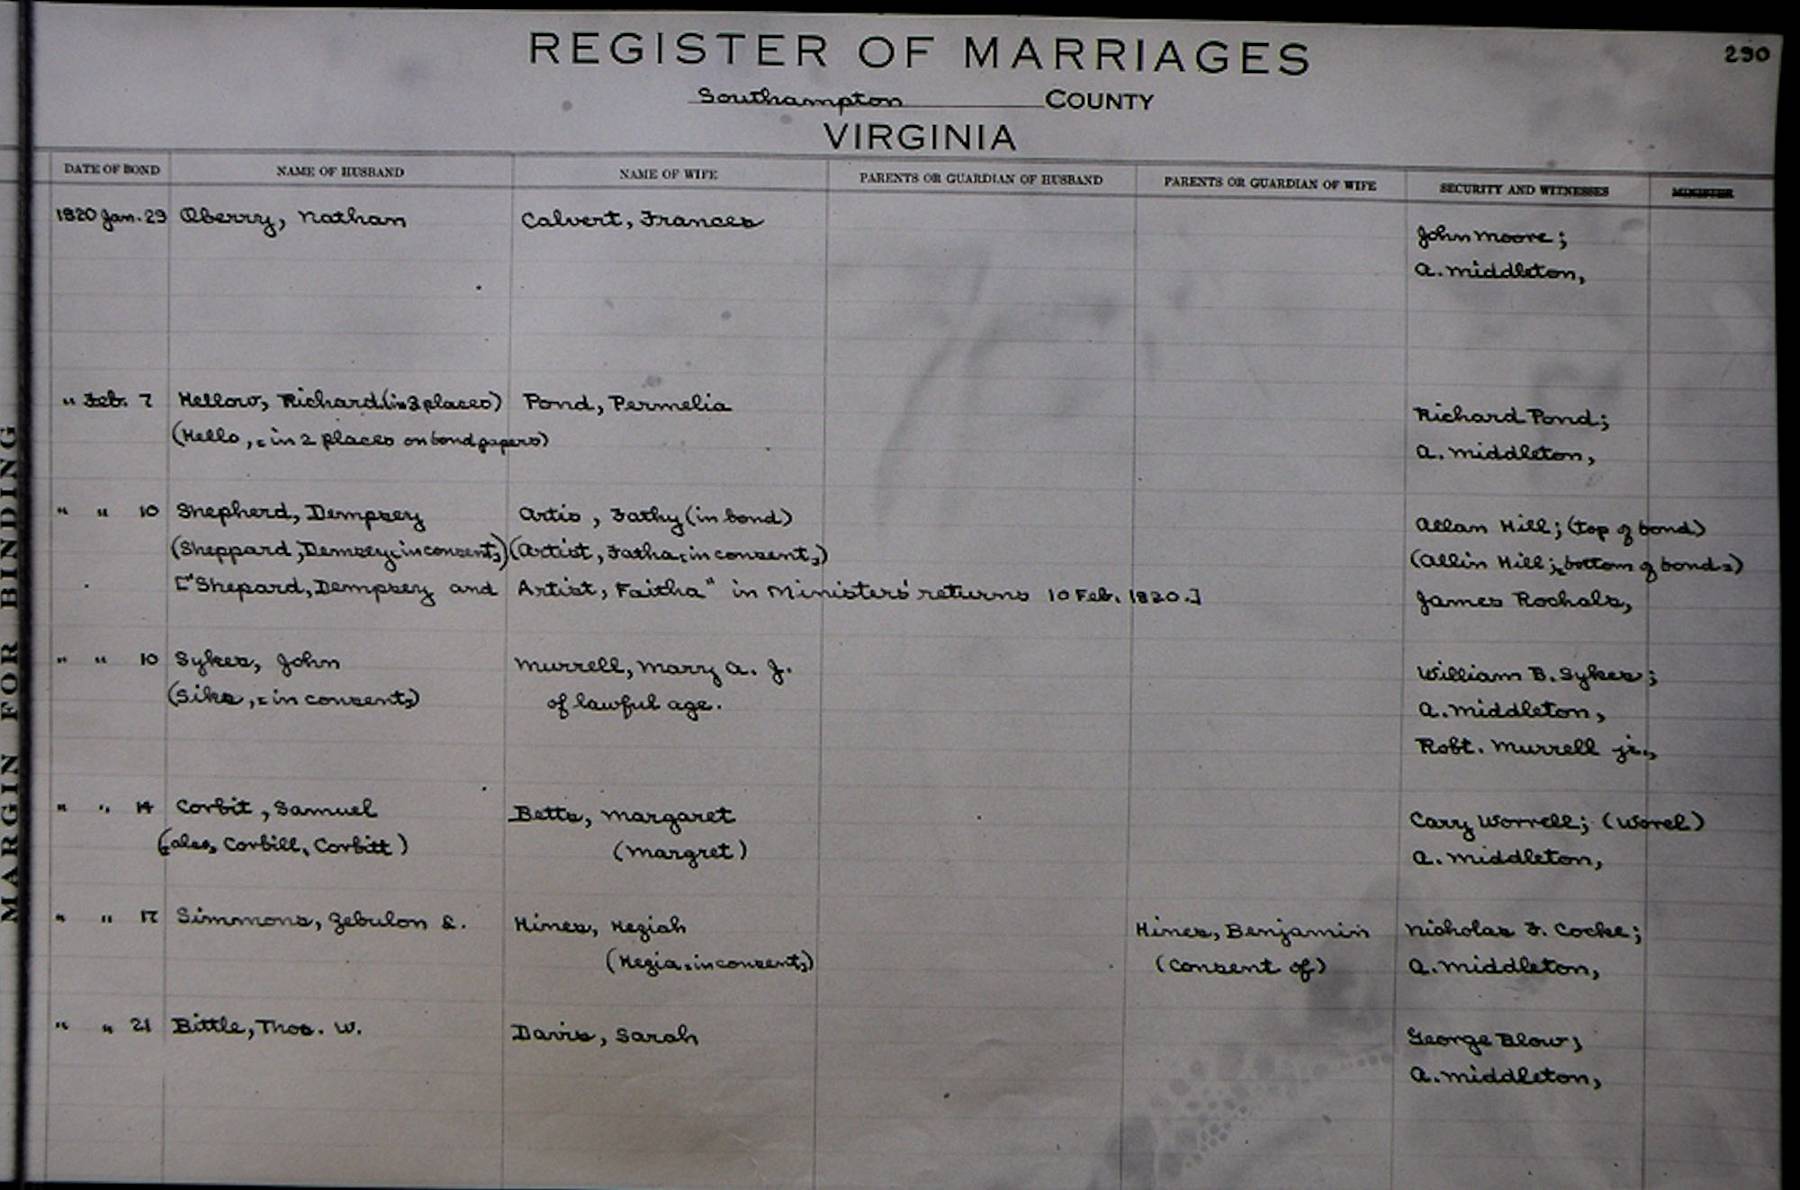 290
REGISTER OF MARRIAGES
Southampton COUNTY
VIRGINIA
DATE OF BOND NAME OF HUSBAND NAME OF WIFE PARENTS OR GUARDIAN OF HUSBAND PARENTS OR GUARDIAN OF WIFE SECURITY AND WITNESSES MINISTER
1820 Jan. 29 Oberry, Nathan Calvert, Frances
John Moore;
A. Middleton,
" Feb. 7 Hellow, Richard (in 3 places) Pond, Permelia
Richard Pond;
(Hello, in 2 places on bond papers)
A. Middleton,
" " 10 Shepherd, Dempsey Artis, Fathy (in bond)
Allan Hill; (top of bond)
(Sheppard, Demsey, in consent,) (Artist, Fatha, in consent,)
(Allin Hill; bottom of bond)
["Shepard, Dempsey and Artist, Faitha" in Ministers' returns 10 Feb. 1820.]
James Rochals,
" " 10 Sykes, John Murrell, Mary A. J.
William B. Sykes;
(Siks, in consent) of lawful age.
A. Middleton,
Robt. Murrell jr.,
" " 14 Corbit, Samuel Betts, Margaret
Cary Worrell; (Worel)
(also, Corbill, Corbitt) (Margret)
A. Middleton,
" " 17 Simmons, Zebulon &. Hines, Keziah Hines, Benjamin Nicholas F. Cocke;
(Kezia, in consent,) (consent of) A. Middleton,
" " 21 Bittle, Thos. W. Davis, Sarah George Blow;
A. Middleton,
MARGIN FOR BINDING